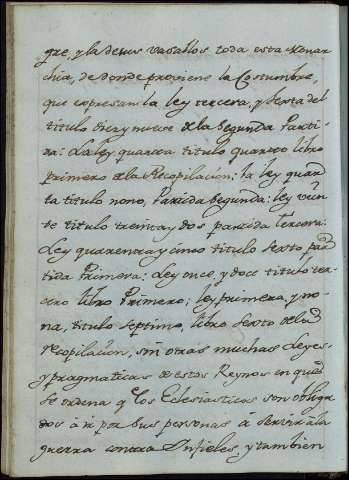 gre, y la de sus vasallos toda esta Monar
chia, de donde proviene la Costumbre,
que expresan la ley tercera, y sexta del
titulo diez y nueve de la Segunda Parti
da: La ley quarta titulo quarto libro
primero de la Recopilacion; la ley quar
ta titulo nono, Partida Segunda: ley vein
te titulo treinta y dos partida tercera:
Ley quarenta y cinco titulo Sexto, par
tida Primera: Ley once, y doce titulo ter
cero libro Primero; ley primera, y no
na, titulo Septimo, libro Sexto de la
recopilacion, sin otras muchas Leyes,
y pragmaticas de estos Reynos en que
Se ordena q los Eclesiasticos son obliga
dos à ir por sus personas à servir à la
guerra contra Infieles, y tambien